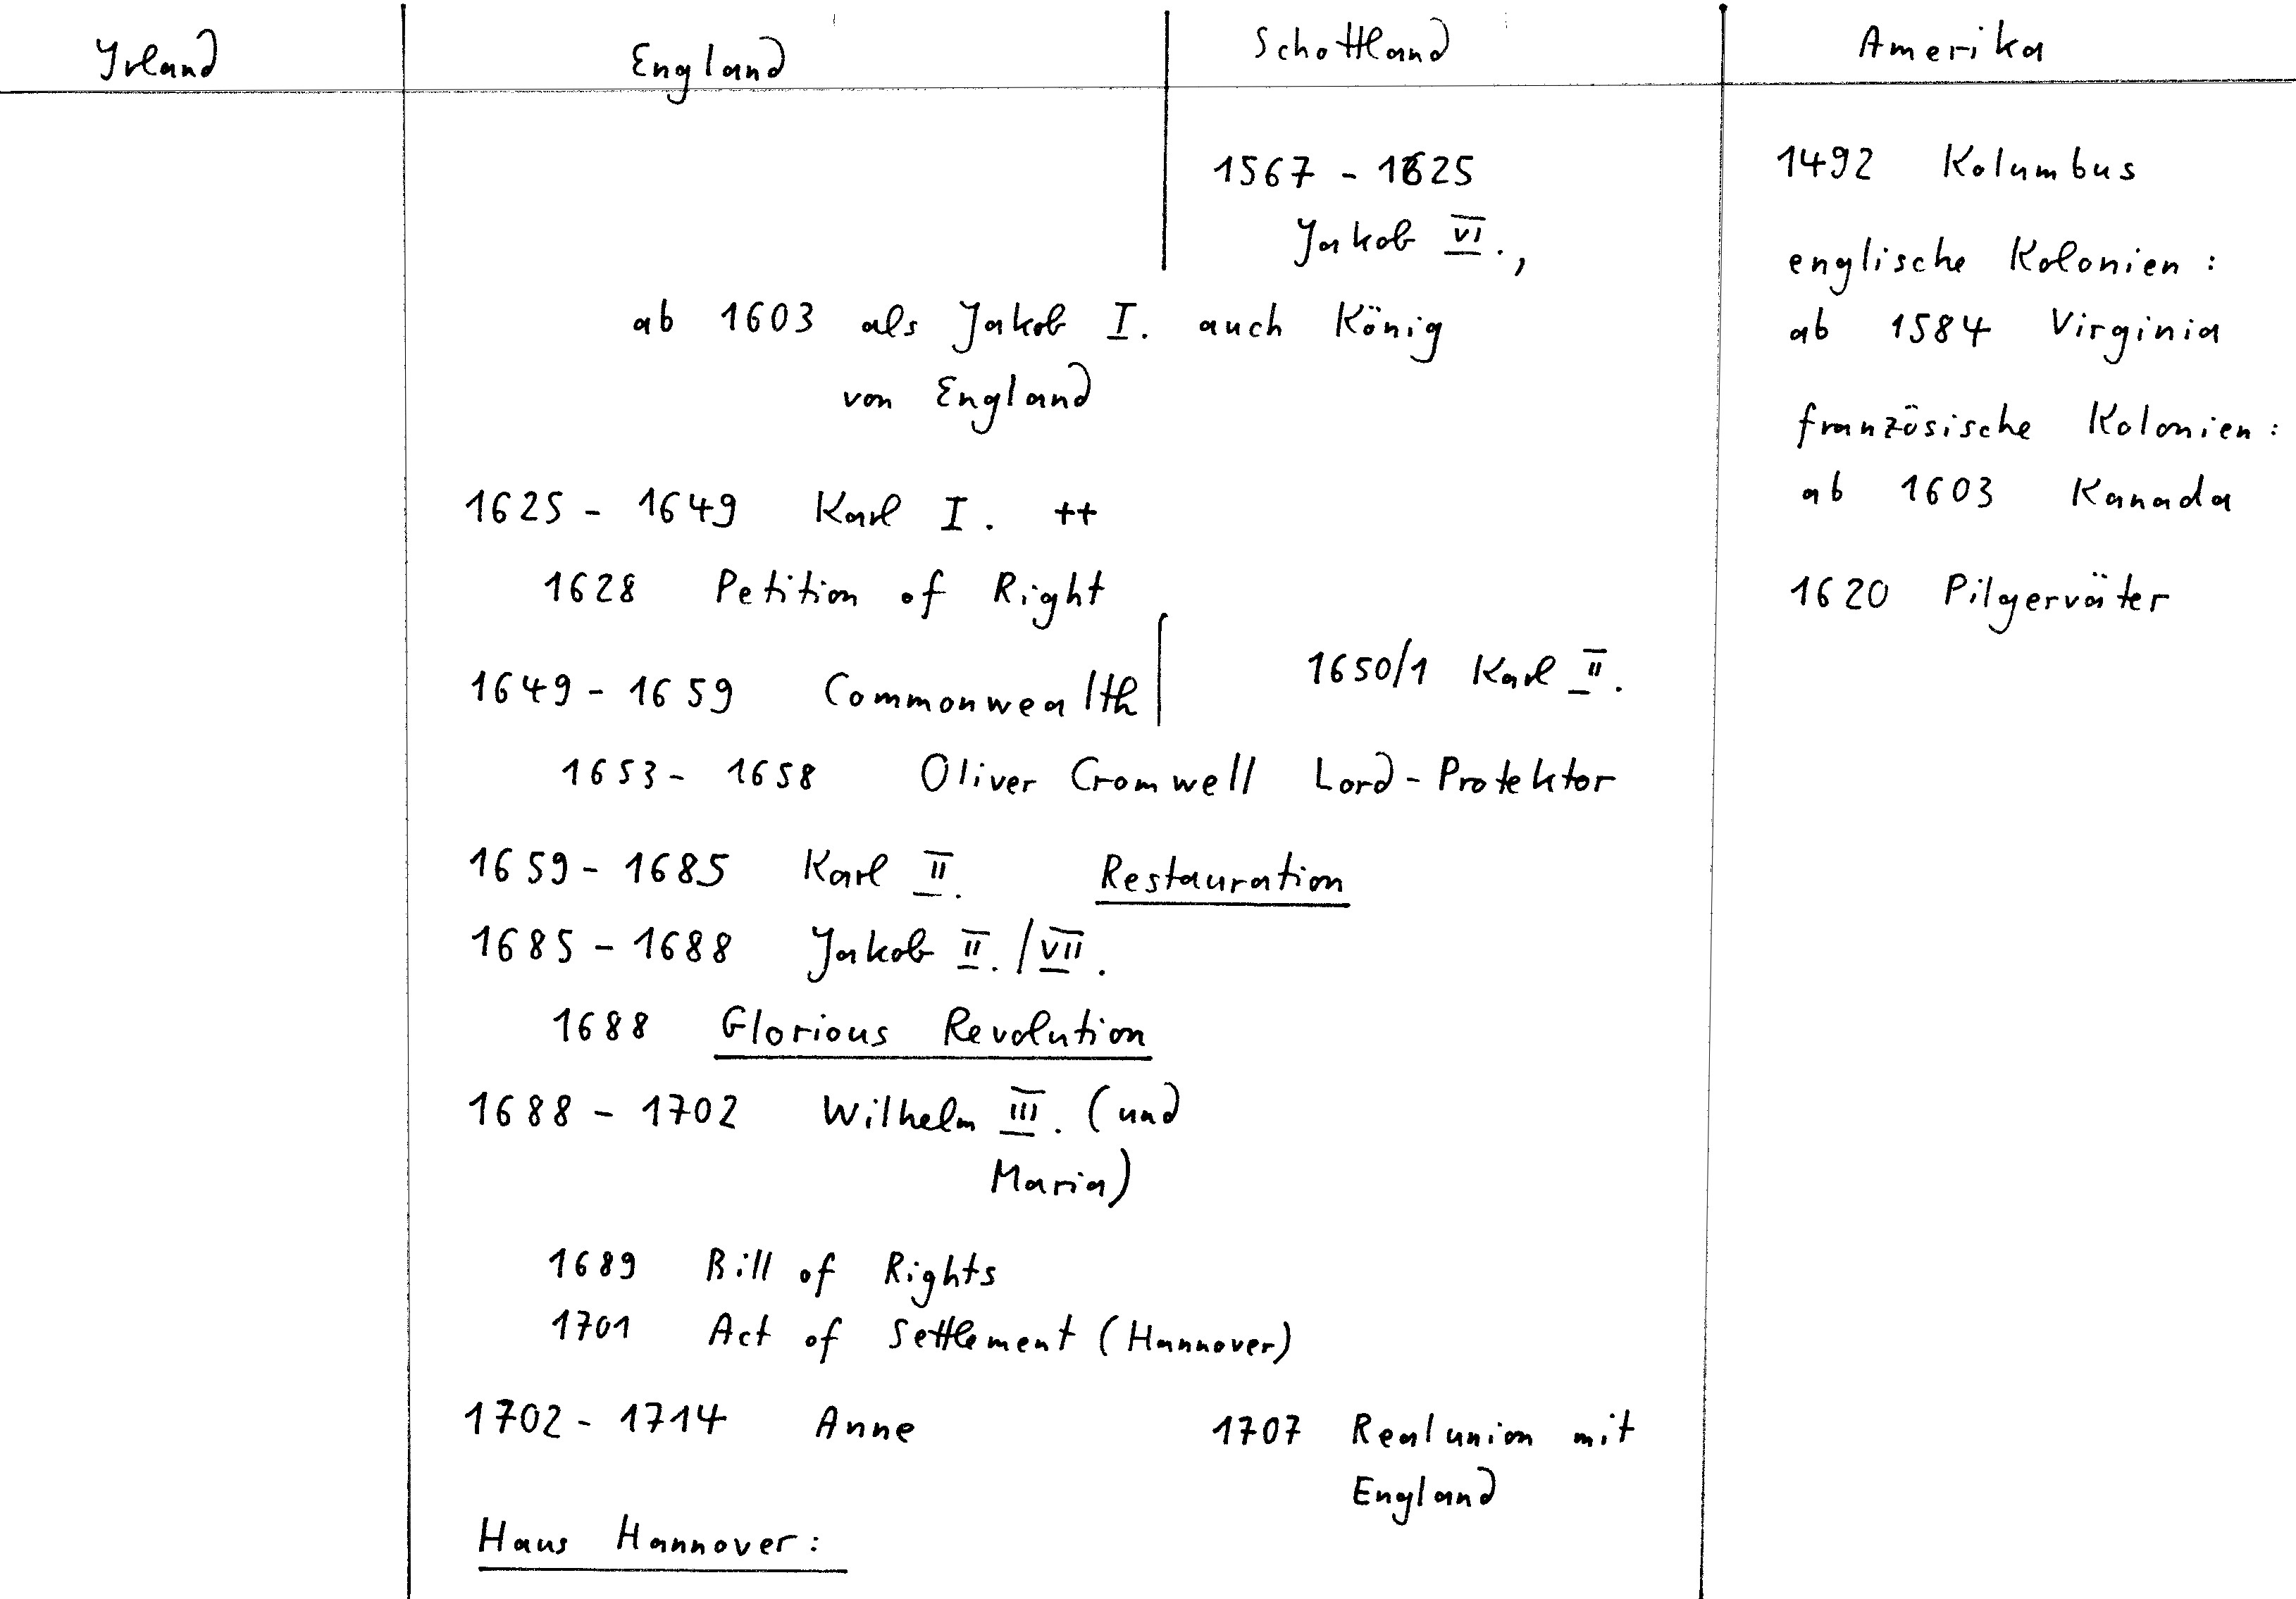 Irland England Schottland Amerika
1567 - 1625
Jakob VI.,
ab 1603 als Jakob I. auch König
von England
1625 - 1649 Karl I. ++
1628 Petition of Right
1649 - 1659 Commonwealth 1650/1 Karl II.
1653 - 1658 Oliver Cromwell Lord-Protektor
1659 - 1685 Karl II. Restauration
1685 - 1688 Jakob II./VII.
1688 Glorious Revolution
1688 - 1702 Wilhelm III. (und
Maria)
1689 Bill of Rights
1701 Act of Settlement (Hannover)
1702 - 1714 Anne 1707 Realunion mit
England
Haus Hannover:
1492 Kolumbus
englische Kolonien:
ab 1584 Virginia
französische Kolonien:
ab 1603 Kanada
1620 Pilgerväter